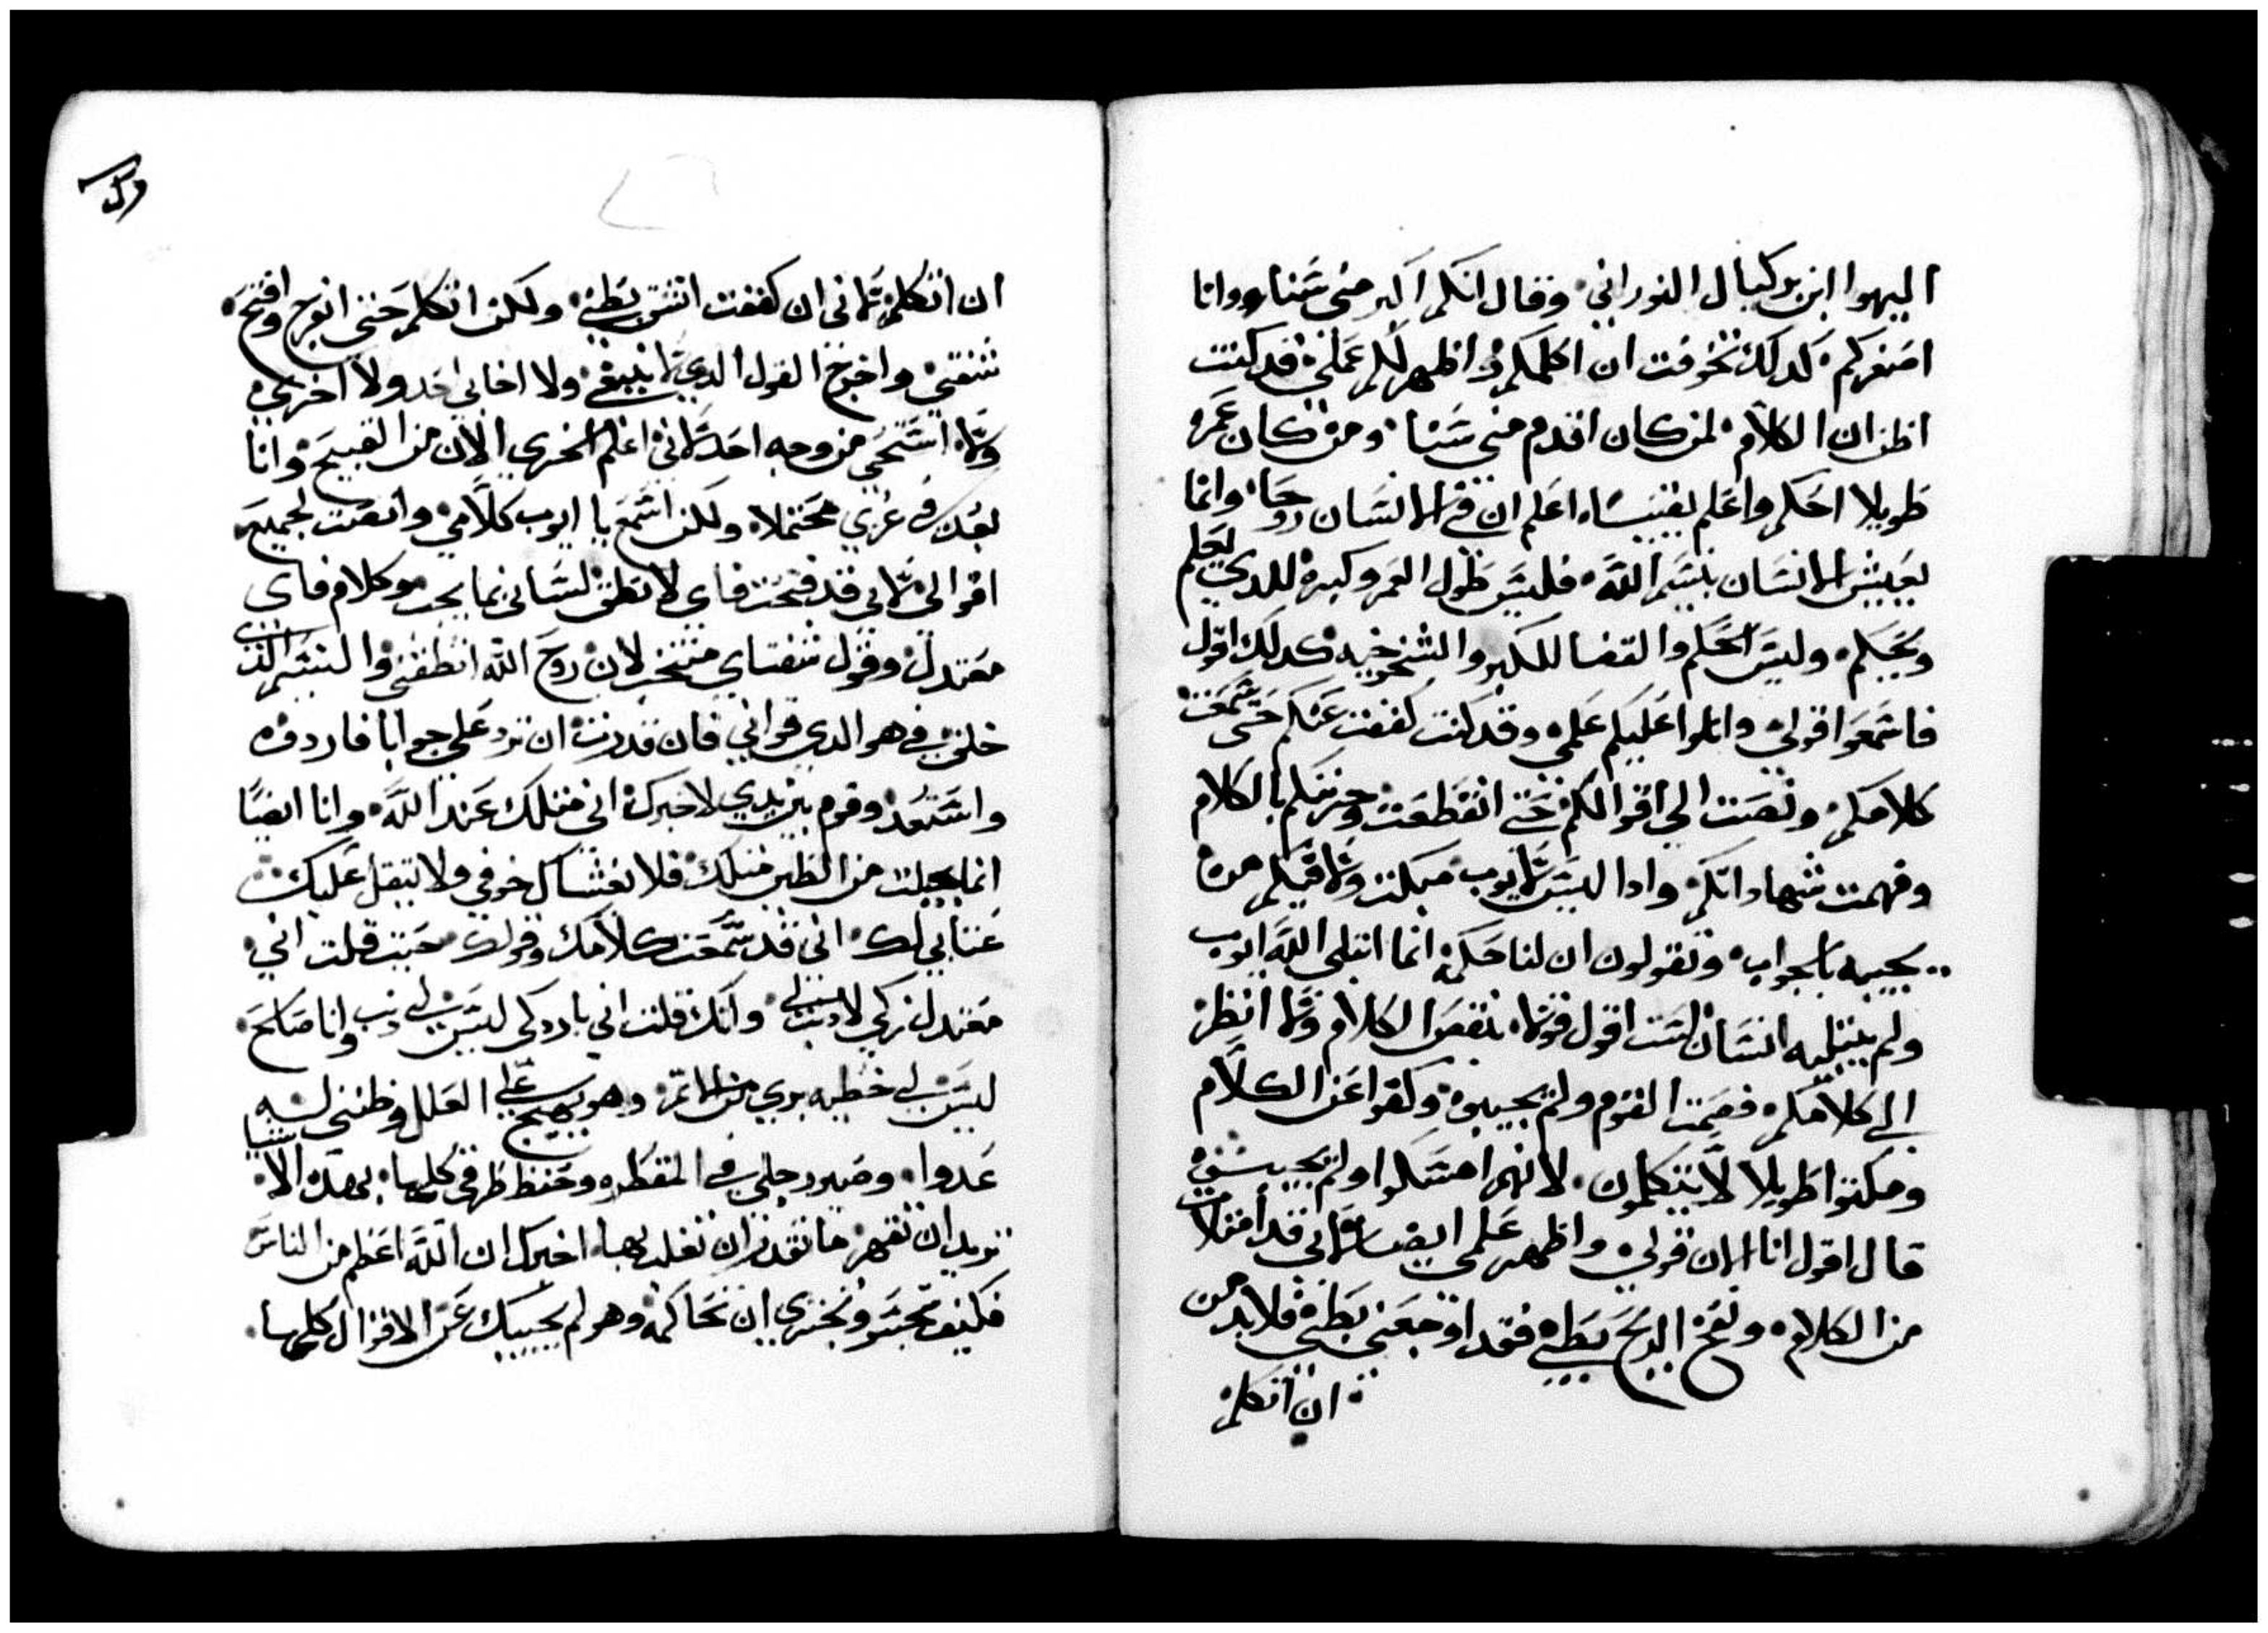 اليهوا ابن بركيال النوراني وقال انكم اكبر مني سنا وانا
اصغركم كدلك تخوفت ان اكلمكم واظهر لكم عملي قد كنت
اظن ان الكلام لمن كان اقدم مني سنا ومن كان عمره
طويلا احكم واعلم اعلم ان في الانسان روحا وانما
يعيش الانسان بنسم الله فليس طول العمر وكبره للدي يعلم
ويحكم وليس الحكم والقضا للكبر والشيخوخيه كدلك اقول
فاسمعوا قولي واتلوا عليكم علمي وقد كنت كففت عنكم حتى سمعت
كلامكم ونصت الي اقوالكم حتى انقطعت بالكلام
وفهمت شهاداتكم وادا ليس لايوب مبكت ولا فيكم من
يجيبه بالجواب وتقولون ان لنا حكمه انما ابتلي الله ايوب
ولم يبتليه انسان لست اقول قولا بنقص الكلام ولا انظر
الي كلامكم فصمت القوم ولم يجيبوه وكفوا عن الكلام
ومكثوا طويلا لا يتكلمون لانهم امسكوا ولم يجيب
قال اقول انا الان قولي واظهر علمي ايضا لاني قد امتلات
من الكلام ونفخ الريح بطني فقد اوجعني بطني فلا بد من
ان اتكلم
ان اتكلم لاني ان كففت انشق بطني ولكن اتكلم حتى انفرج وافتح
شفتي واخرج القول الدي لا ينبغي ولا احابي احد ولا اخزي
ولا استحي من وجه احد لاني اعلم الخزي الان من القبيح وانا
بعد في عزي محتملا ولكن اسمع يا ايوب كلامي وانصت لجميع
اقوالي لاني قد فتحت فاي لانطق لساني بما يجب هو كلام فاي
معتدل وقول شفتاي منتخب لان روح الله انطقني والنسم الدي
خلق في هو الدي قواني فان قدرت ان ترد علي جوابا فاردده
واستعد وقوم بين يدي لاخبرك اني مثلك عند الله وانا ايضا
انما جبلت من الطين مثلك فلا يغشاك خوفي ولا تثقل عليك
عتابي لك اني قد سمعت كلامك وقولك حيت قلت اني
معتدل زكي لا دنب لي وانك قلت اني بار زكي ليس لي دنب وانا صالح
ليس لي خطيه بري من الاثم وهو يهيج علي العلل وظنني له
عدوا وصير رجلي في المقطره وحفظ طرقي كلها بهده الاشيا
تريد ان تقهر ما تقدر ان تغلب بها اخبرك ان الله اعظم من الناس
فكيف تجسر وتجتري ان تحاكمه وهو لم يجيبك عن الاقوال كلها